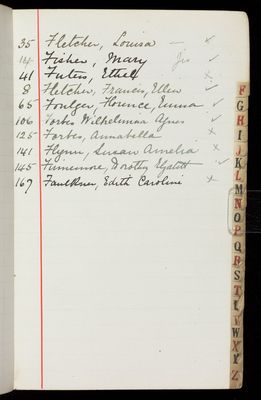 35 Fletcher, Louisa — ✓
14 Fisher, Mary Jis ✓
41 Futers, Ethel x
8 Fletcher, Frances, Ellen ✓
65 Foulger, Florence, Emma ✓
106 Forbes Wilhelmina Agnes ✓
125 Forbes, Annabella x
141 Flynn, Susan Amelia x
145 Finnemore, Dorothy ✓
167 Faulkner, Edith Caroline x
F
G
H
I
J
K
L
M
N
O
P
Q
R
S
T
V
W
X
Y
Z